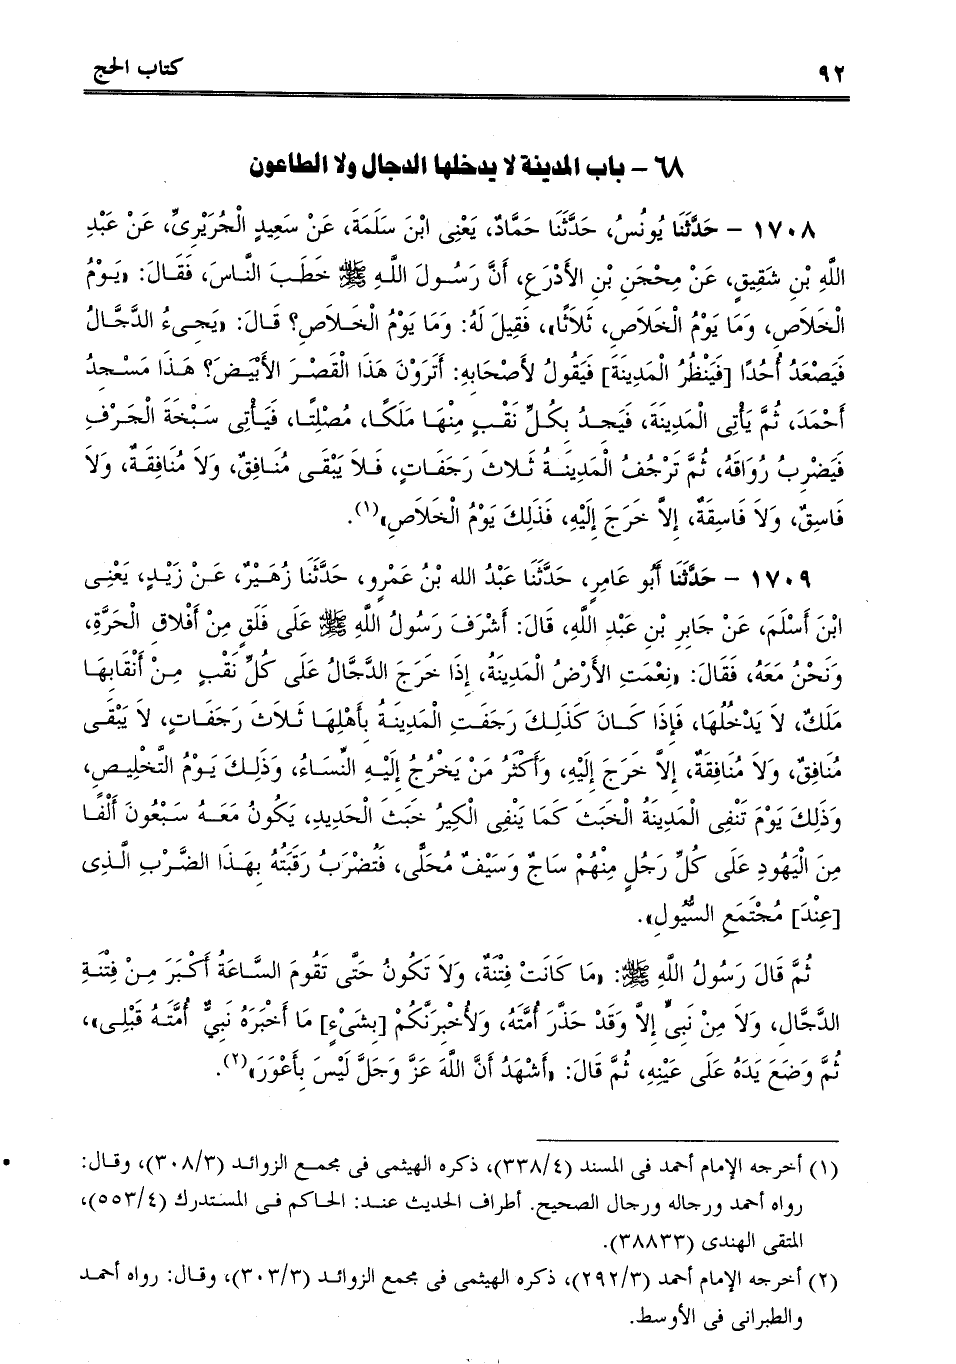 ٩٢ كتاب الحج
٦٨ – باب المدينة لا يدخلها الدجال ولا الطاعون
١٧٠٨ – حَدَّثَنَا يُونُسُ، حَدَّثَنَا حَمَّادٌ، يَعْنِى ابْنَ سَلَمَةَ، عَنْ سَعِيدٍ الْجُرَيْرِىِّ، عَنْ عَبْدِ
اللَّهِ بْنِ شَقِيقٍ، عَنْ مِحْجَنِ بْنِ الأَدْرَعِ، أَنَّ رَسُولَ اللَّهِ ﷺ خَطَبَ النَّاسَ، فَقَالَ: «يَوْمُ
الْخَلاَصِ، وَمَا يَوْمُ الْخَلاَصِ، ثَلاَثًا»، فَقِيلَ لَهُ: وَمَا يَوْمُ الْخَلاَصِ؟ قَالَ: «يَجِىءُ الدَّجَّالُ
فَيَصْعَدُ أُحُدًا [فَيَنْظُرُ الْمَدِينَةَ] فَيَقُولُ لأَصْحَابِهِ: أَتَرَوْنَ هَذَا الْقَصْرَ الأَبْيَضَ؟ هَذَا مَسْجِدُ
أَحْمَدَ، ثُمَّ يَأْتِى الْمَدِينَةَ، فَيَجِدُ بِكُلِّ نَقْبٍ مِنْهَا مَلَكًا، مُصْلِتًا، فَيَأْتِى سَبْخَةَ الْجَرْفِ
فَيَضْرِبُ رُوَاقَهُ، ثُمَّ تَرْجُفُ الْمَدِينَةُ ثَلاَثَ رَجَفَاتٍ، فَلاَ يَبْقَى مُنَافِقٌ، وَلاَ مُنَافِقَةٌ، وَلاَ
فَاسِقٌ، وَلاَ فَاسِقَةٌ، إِلاَّ خَرَجَ إِلَيْهِ، فَذَلِكَ يَوْمُ الْخَلاَصِ»(١).
١٧٠٩ – حَدَّثَنَا أَبُو عَامِرٍ، حَدَّثَنَا عَبْدُ الله بْنُ عَمْرٍو، حَدَّثَنَا زُهَيْرٌ، عَنْ زَيْدٍ، يَعْنِى
ابْنَ أَسْلَمَ، عَنْ جَابِرِ بْنِ عَبْدِ اللَّهِ، قَالَ: أَشْرَفَ رَسُولُ اللَّهِ ﷺ عَلَى فَلَقٍ مِنْ أَفْلاَقِ الْحَرَّةِ،
وَنَحْنُ مَعَهُ، فَقَالَ: «نِعْمَتِ الأَرْضُ الْمَدِينَةُ، إِذَا خَرَجَ الدَّجَّالُ عَلَى كُلِّ نَقْبٍ مِنْ أَنْقَابِهَا
مَلَكٌ، لاَ يَدْخُلُهَا، فَإِذَا كَانَ كَذَلِكَ رَجَفَتِ الْمَدِينَةُ بِأَهْلِهَا ثَلاَثَ رَجَفَاتٍ، لاَ يَبْقَى
مُنَافِقٌ، وَلاَ مُنَافِقَةٌ، إِلاَّ خَرَجَ إِلَيْهِ، وَأَكْثَرُ مَنْ يَخْرُجُ إِلَيْهِ النِّسَاءُ، وَذَلِكَ يَوْمُ التَّخْلِيصِ،
وَذَلِكَ يَوْمَ تَنْفِى الْمَدِينَةُ الْخَبَثَ كَمَا يَنْفِى الْكِيرُ خَبَثَ الْحَدِيدِ، يَكُونُ مَعَهُ سَبْعُونَ أَلْفًا
مِنَ الْيَهُودِ عَلَى كُلِّ رَجُلٍ مِنْهُمْ سَاجٌ وَسَيْفٌ مُحَلًّى، فَتُضْرَبُ رَقَبَتُهُ بِهَذَا الضَّرْبِ الَّذِى
[عِنْدَ] مُجْتَمَعِ السُّيُولِ».
ثُمَّ قَالَ رَسُولُ اللَّهِ ﷺ: «مَا كَانَتْ فِتْنَةٌ، وَلاَ تَكُونُ حَتَّى تَقُومَ السَّاعَةُ أَكْبَرَ مِنْ فِتْنَةِ
الدَّجَّالِ، وَلاَ مِنْ نَبِىٍّ إِلاَّ وَقَدْ حَذَّرَ أُمَّتَهُ، وَلأُخْبِرَنَّكُمْ [بِشَىْءٍ] مَا أَخْبَرَهُ نَبِىٌّ أُمَّتَهُ قَبْلِى»،
ثُمَّ وَضَعَ يَدَهُ عَلَى عَيْنِهِ، ثُمَّ قَالَ: «أَشْهَدُ أَنَّ اللَّهَ عَزَّ وَجَلَّ لَيْسَ بِأَعْوَرَ»(٢).
(١) أخرجه الإمام أحمد فى المسند (٣٣٨/٤)، ذكره الهيثمى فى مجمع الزوائد (٣٠٨/٣)، وقال:
رواه أحمد ورجاله ورجال الصحيح. أطراف الحديث عند: الحاكم فى المستدرك (٥٥٣/٤)،
المتقى الهندى (٣٨٨٣٣).
(٢) أخرجه الإمام أحمد (٢٩٢/٣)، ذكره الهيثمى فى مجمع الزوائد (٣٠٣/٣)، وقال: رواه أحمد
والطبرانى فى الأوسط.